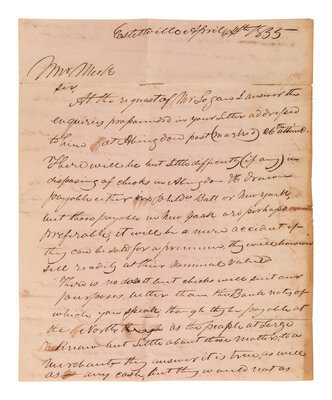 Estillville April 8th 1835
Mr Meek
Sir
At the request of Mr Logan I answer the
enquiries propounded in your Letter addressed
to him at Abingdon post (marked) 26th ultimo.
There will be but little difficulty (if any) in
disposing of checks in Abingdon Va drawn
payable either in Philda. Balt or New york,
but those payable in New york are perhaps
preferable, it will be a mere accident if
they can be sold for a premium, they will however
sell readily at their Nominal Value
There is no doubt but checks will suit our
purposes, better than the Bank notes of
which you speak, though they be payable at
the North as the people at large
Know but little about those matters, to a
Merchant they answer it is true, as well
as any cash, but they would not as